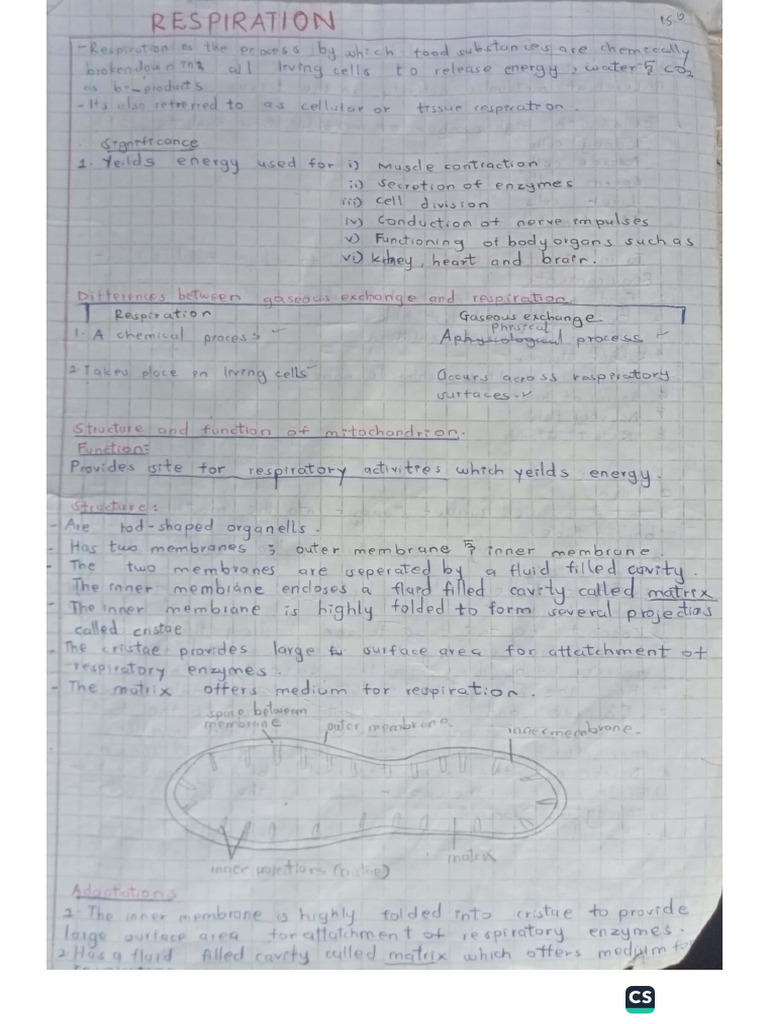 RESPIRATION
- Respiration is the process by which food substances are chemically
brokendown in all living cells to release energy, water & CO2
as bi-products
- Its also referred to as cellular or tissue respiration.
Significance
1. Yeilds energy used for i) Muscle contraction
ii) Secretion of enzymes
iii) Cell division
iv) Conduction of nerve impulses
v) Functioning of body organs such as
vi) kidney, heart and brain.
Differences between gaseous exchange and respiration.
Respiration Gaseous exchange
Physical
1. A chemical process Aphysiological process
2. Takes place in living cells Occurs across respiratory
surfaces.
Structure and function of mitochondrion.
Function:
Provides site for respiratory activities which yeilds energy.
Structure:
- Are rod-shaped organells.
- Has two membranes ; outer membrane & inner membrane.
- The two membranes are seperated by a fluid filled cavity.
The inner membrane encloses a fluid filled cavity called matrix
- The inner membrane is highly folded to form several projections
called cristae
- The cristae provides large surface area for attatchment of
respiratory enzymes.
- The matrix offers medium for respiration.
space between
membrane outer membrane. inner membrane.
inner projections (cristae) matrix
Adaptations
1. The inner membrane is highly folded into cristae to provide
large surface area for attatchment of respiratory enzymes.
2. Has a fluid filled cavity called matrix which offers medium for
CS